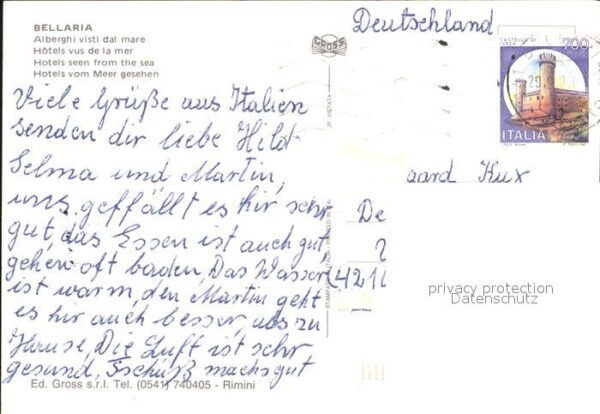 BELLARIA
Alberghi visti dal mare
Hôtels vus de la mer
Hotels seen from the sea
Hotels vom Meer gesehen
Deutschland
GROSS
700
ITALIA
Viele Grüße aus Italien
senden dir liebe Hild
Selma und Martin,
uns geffällt es hir sehr
gut, das Essen ist auch gut,
gehen oft baden, Das Wasser
ist warm, den Martin geht
es hir auch besser, als zu
Hause, Die Luft ist sehr
gesund, Tschüß machs gut
aard Kux
De
(421
privacy protection
Datenschutz
Ed. Gross s.r.l. Tel. (0541) 740405 - Rimini